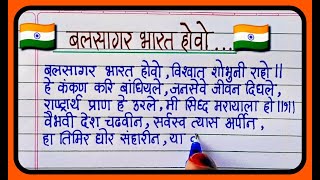 बलसागर भारत होवो ...
बलसागर भारत होवो, विश्वात शोभुनी राहो ||
हे कंकण करि बांधियले, जनसेवे जीवन दिधले,
राष्ट्रार्थ प्राण हे उरले, मी सिध्द मरायाला हो ||१||
वैभवी देश चढवीन, सर्वस्व त्यास अर्पीन,
हा तिमिर घोर संहारीन, या